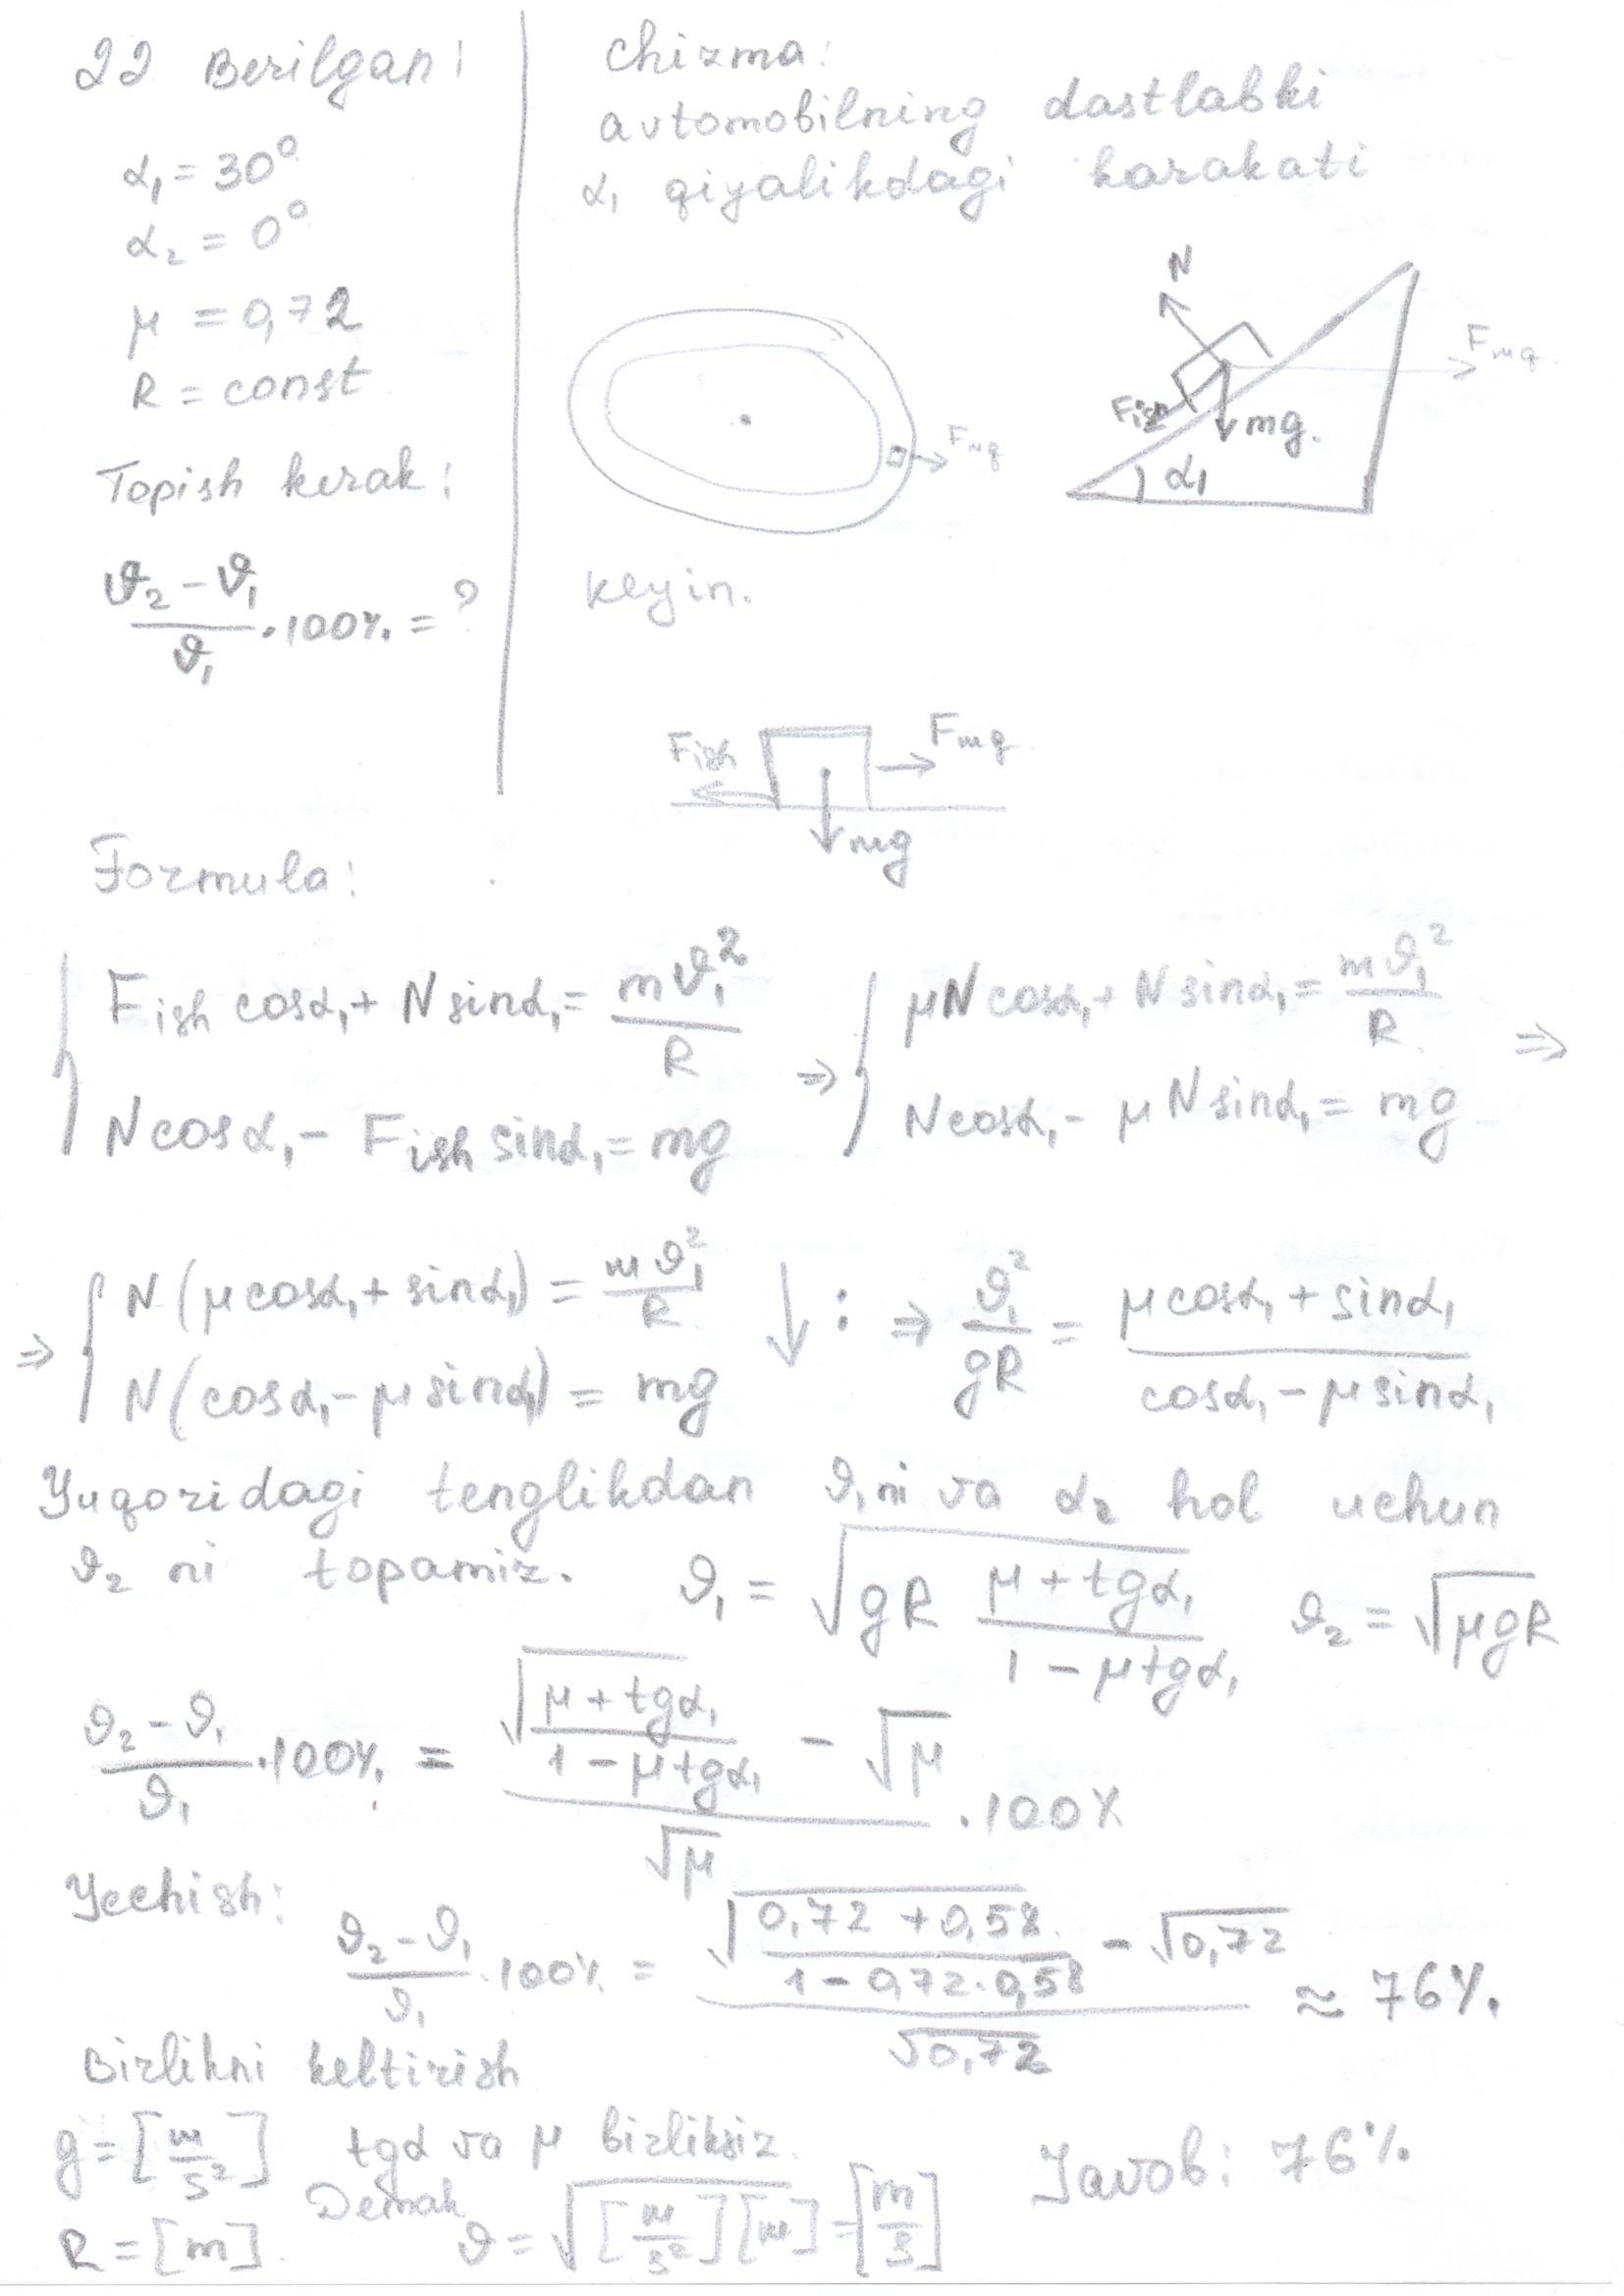 22 Berilgan:
α₁ = 30°
α₂ = 0°
μ = 0,72
R = const
Topish kerak:
(ϑ₂ - ϑ₁)/ϑ₁ · 100% = ?
Chizma:
avtomobilning dastlabki
α₁ qiyalikdagi harakati
N
Fmq
Fish
mg.
α₁
Fmq
keyin.
Fish
Fmq
mg
Formula:
{ Fish cosα₁ + N sinα₁ = mϑ₁²/R ⇒ { μN cosα₁ + N sinα₁ = mϑ₁²/R ⇒
N cosα₁ - Fish sinα₁ = mg
N cosα₁ - μ N sinα₁ = mg
⇒ { N(μcosα₁ + sinα₁) = mϑ₁²/R ↓ : ⇒ ϑ₁²/gR = (μcosα₁ + sinα₁)/(cosα₁ - μsinα₁)
N(cosα₁ - μsinα₁) = mg
Yuqoridagi tenglikdan ϑ₁ ni va α₂ hol uchun
ϑ₂ ni topamiz. ϑ₁ = √(gR (μ + tgα₁)/(1 - μtgα₁)) ϑ₂ = √(μgR)
(ϑ₂ - ϑ₁)/ϑ₁ · 100% = (√((μ + tgα₁)/(1 - μtgα₁)) - √μ)/√μ · 100%
Yechish:
(ϑ₂ - ϑ₁)/ϑ₁ · 100% = (√((0,72 + 0,58)/(1 - 0,72·0,58)) - √0,72)/√0,72 ≈ 76%.
Birlikni keltirish
g = [m/s²] tgα va μ birliksiz.
R = [m] Demak ϑ = √([m/s²][m]) = [m/s]
Javob: 76%.